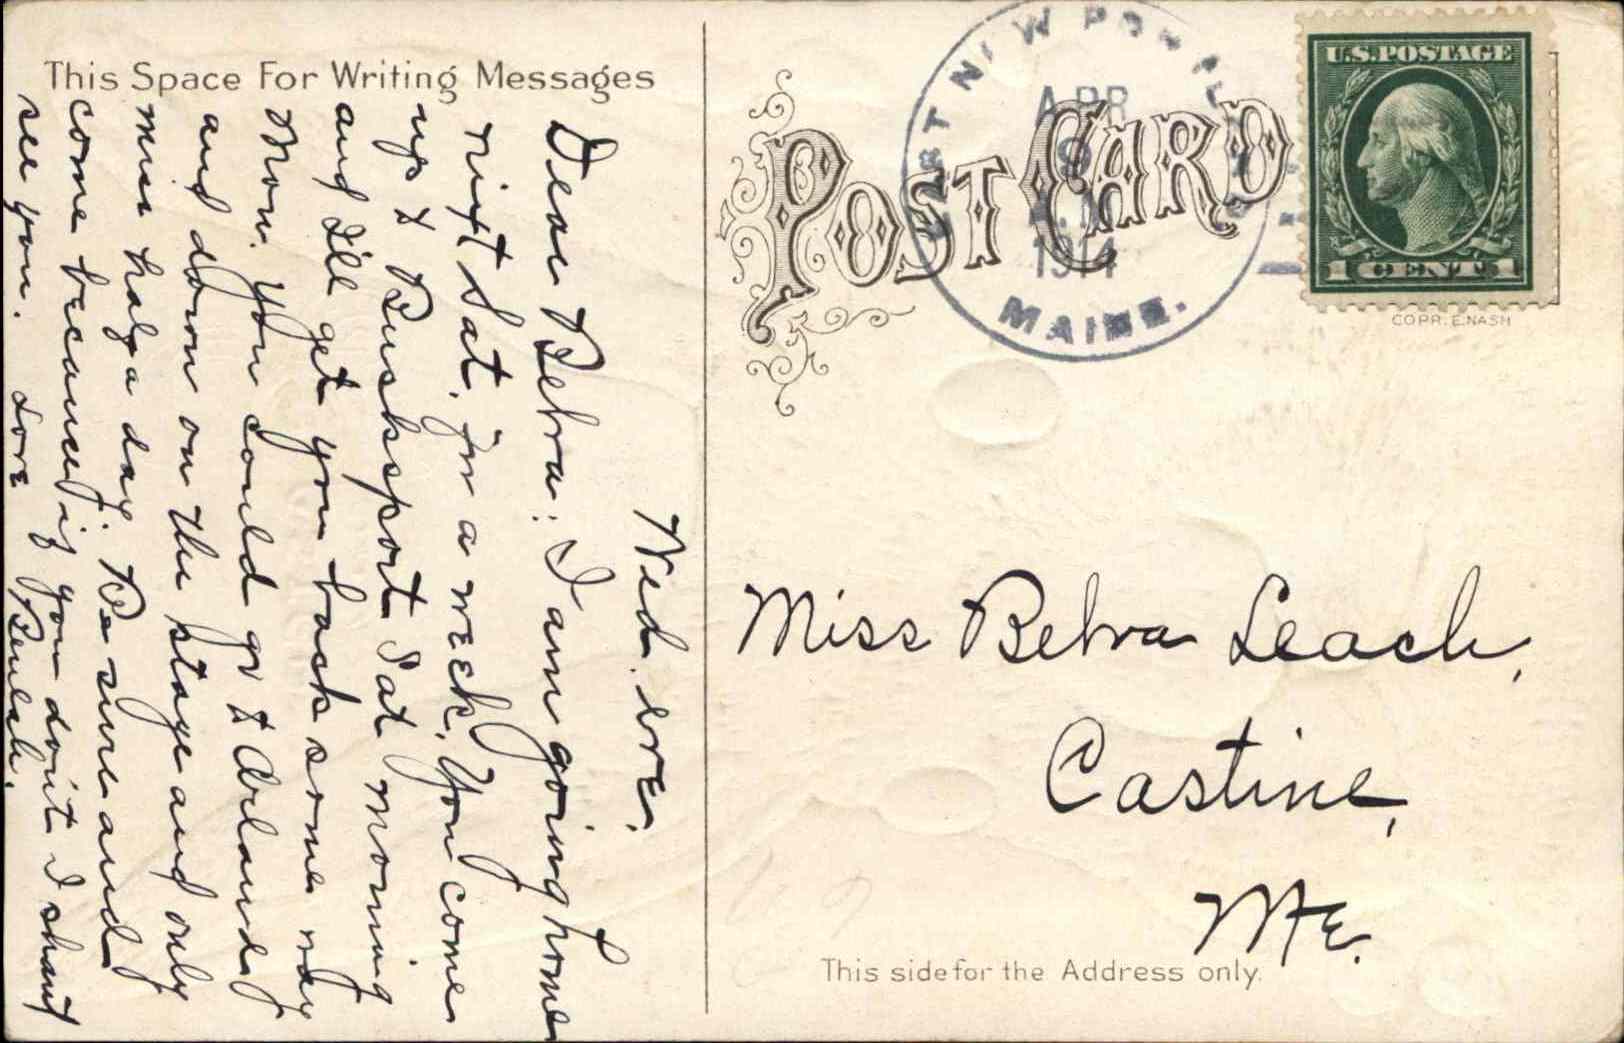 This Space For Writing Messages
Wed. eve.
Dear Belva: I am going home
next Sat. for a week. You come
up to Bucksport Sat morning
and I'll get you back some way
Mon. You could go to Orland
and down on the stage and only
miss half a day. Be sure and
come because if you don't I shant
see you. Love Beulah.
POST CARD
NEW PORTLAND
APR
9
1914
MAINE.
U.S. POSTAGE
1 CENT 1
COPR. E. NASH
Miss Belva Leach,
Castine,
Me.
This side for the Address only.